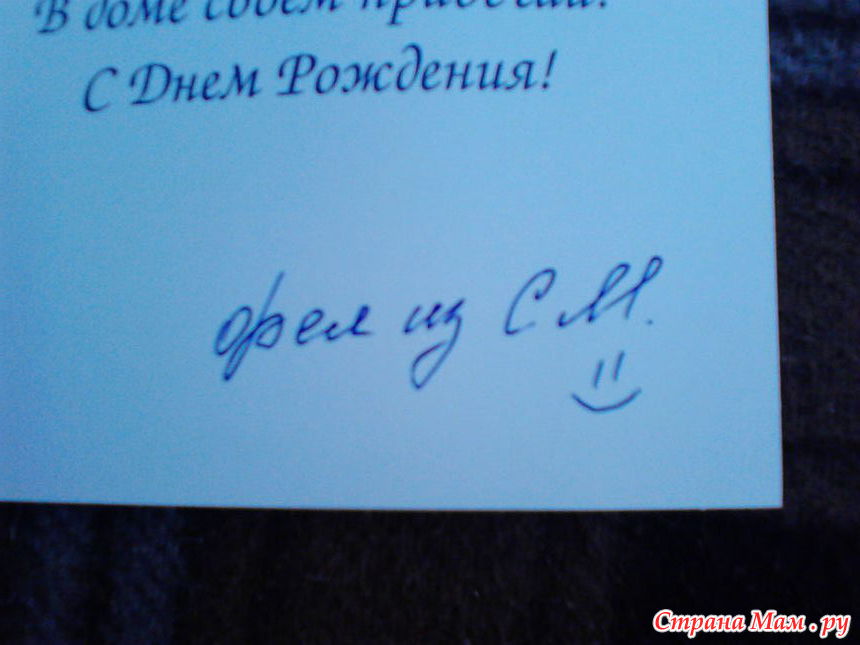 В доме совсем
С Днем Рождения!
орел из С.М.
Страна Мам.ру